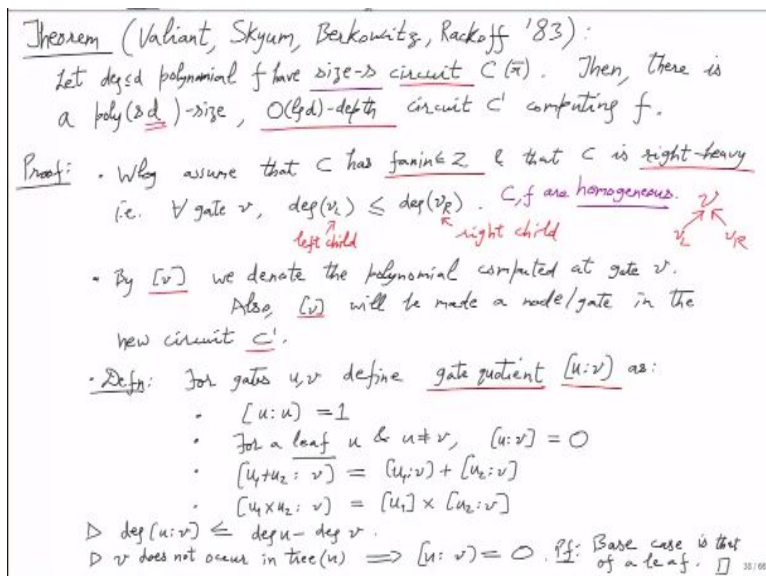 Theorem (Valiant, Skyum, Berkowitz, Rackoff '83):
Let deg≤d polynomial f have size-s circuit C(x̄). Then, there is
a poly(sd)-size, O(lg d)-depth circuit C' computing f.
Proof: • Wlog assume that C has fanin≤2 & that C is right-heavy
i.e. ∀ gate v, deg(v_L) ≤ deg(v_R). C, f are homogeneous. v
left child right child v_L v_R
• By [v] we denote the polynomial computed at gate v.
Also, [v] will be made a node/gate in the
new circuit C'.
• Defn: For gates u,v define gate quotient [u:v] as:
• [u:u] = 1
• For a leaf u & u≠v, [u:v] = 0
• [u₁+u₂ : v] = [u₁:v] + [u₂:v]
• [u₁×u₂ : v] = [u₁] × [u₂:v]
▷ deg[u:v] ≤ deg u - deg v.
▷ v does not occur in tree(u) ⟹ [u:v] = 0. Pf: Base case is that
of a leaf. □ 38/66